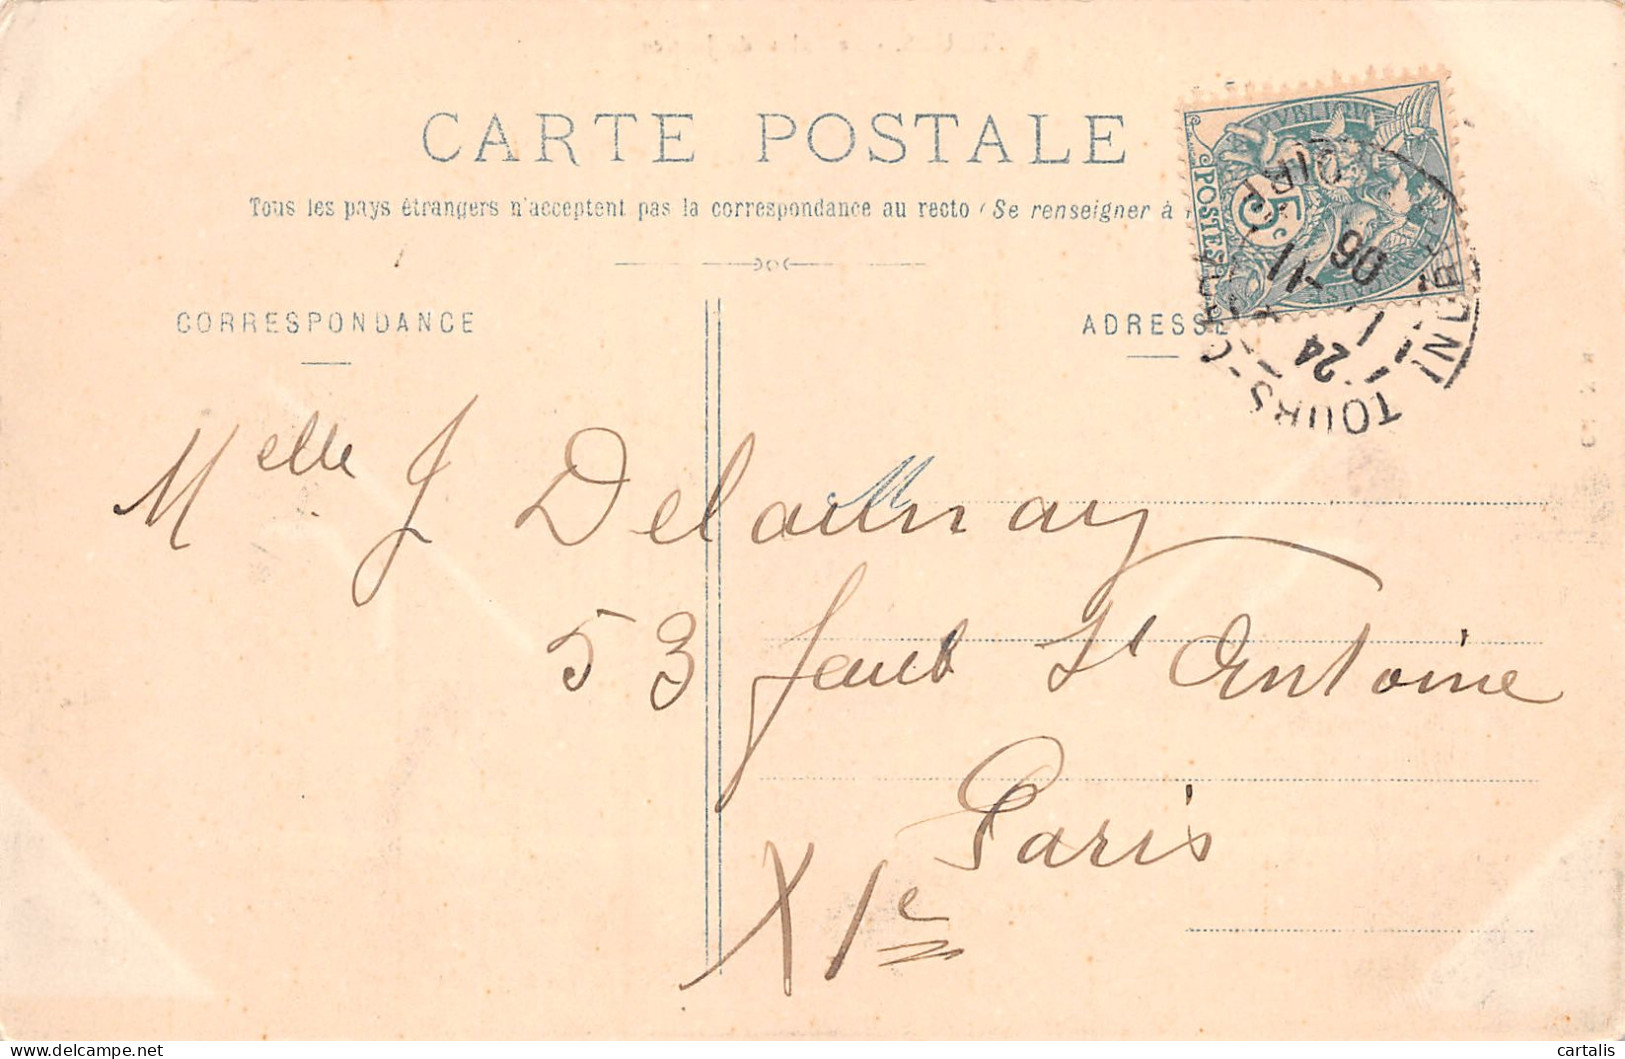 CARTE POSTALE
Tous les pays étrangers n'acceptent pas la correspondance au recto (Se renseigner à
CORRESPONDANCE
ADRESSE
POSTES
5c
TOURS-
24
-11
06
Melle J Delaunay
53 Faub St Antoine
Paris
XIe
delcampe.net
cartalis